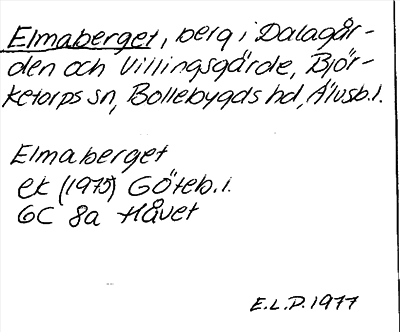 Elmaberget, berg i Dalagår-
den och Villingsgärde, Björ-
ketorps sn, Bollebygds hd, Älvsb.l.
Elmaberget
ek (1975) Göteb.l.
6C 8a Håvet
E.L.P. 1977